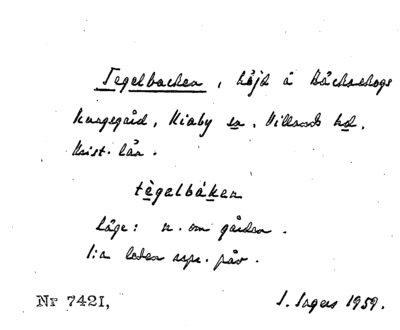 Tegelbacken, höjd å Bäckaskogs
kungsgård, Kiaby sn, Villands hd.
Krist. län.
tègelbáken
Läge: n. om gården.
1:a leden resp. päv.
Nr 7421, S. Ingers 1959.